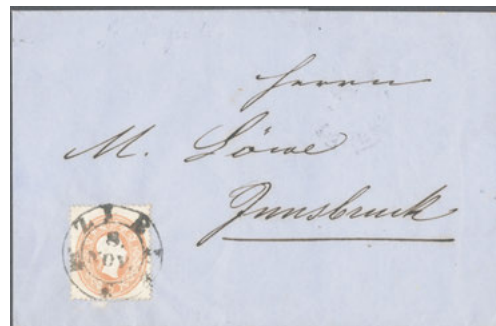 Herrn
M. Löwe
Innsbruck
8
NOV.